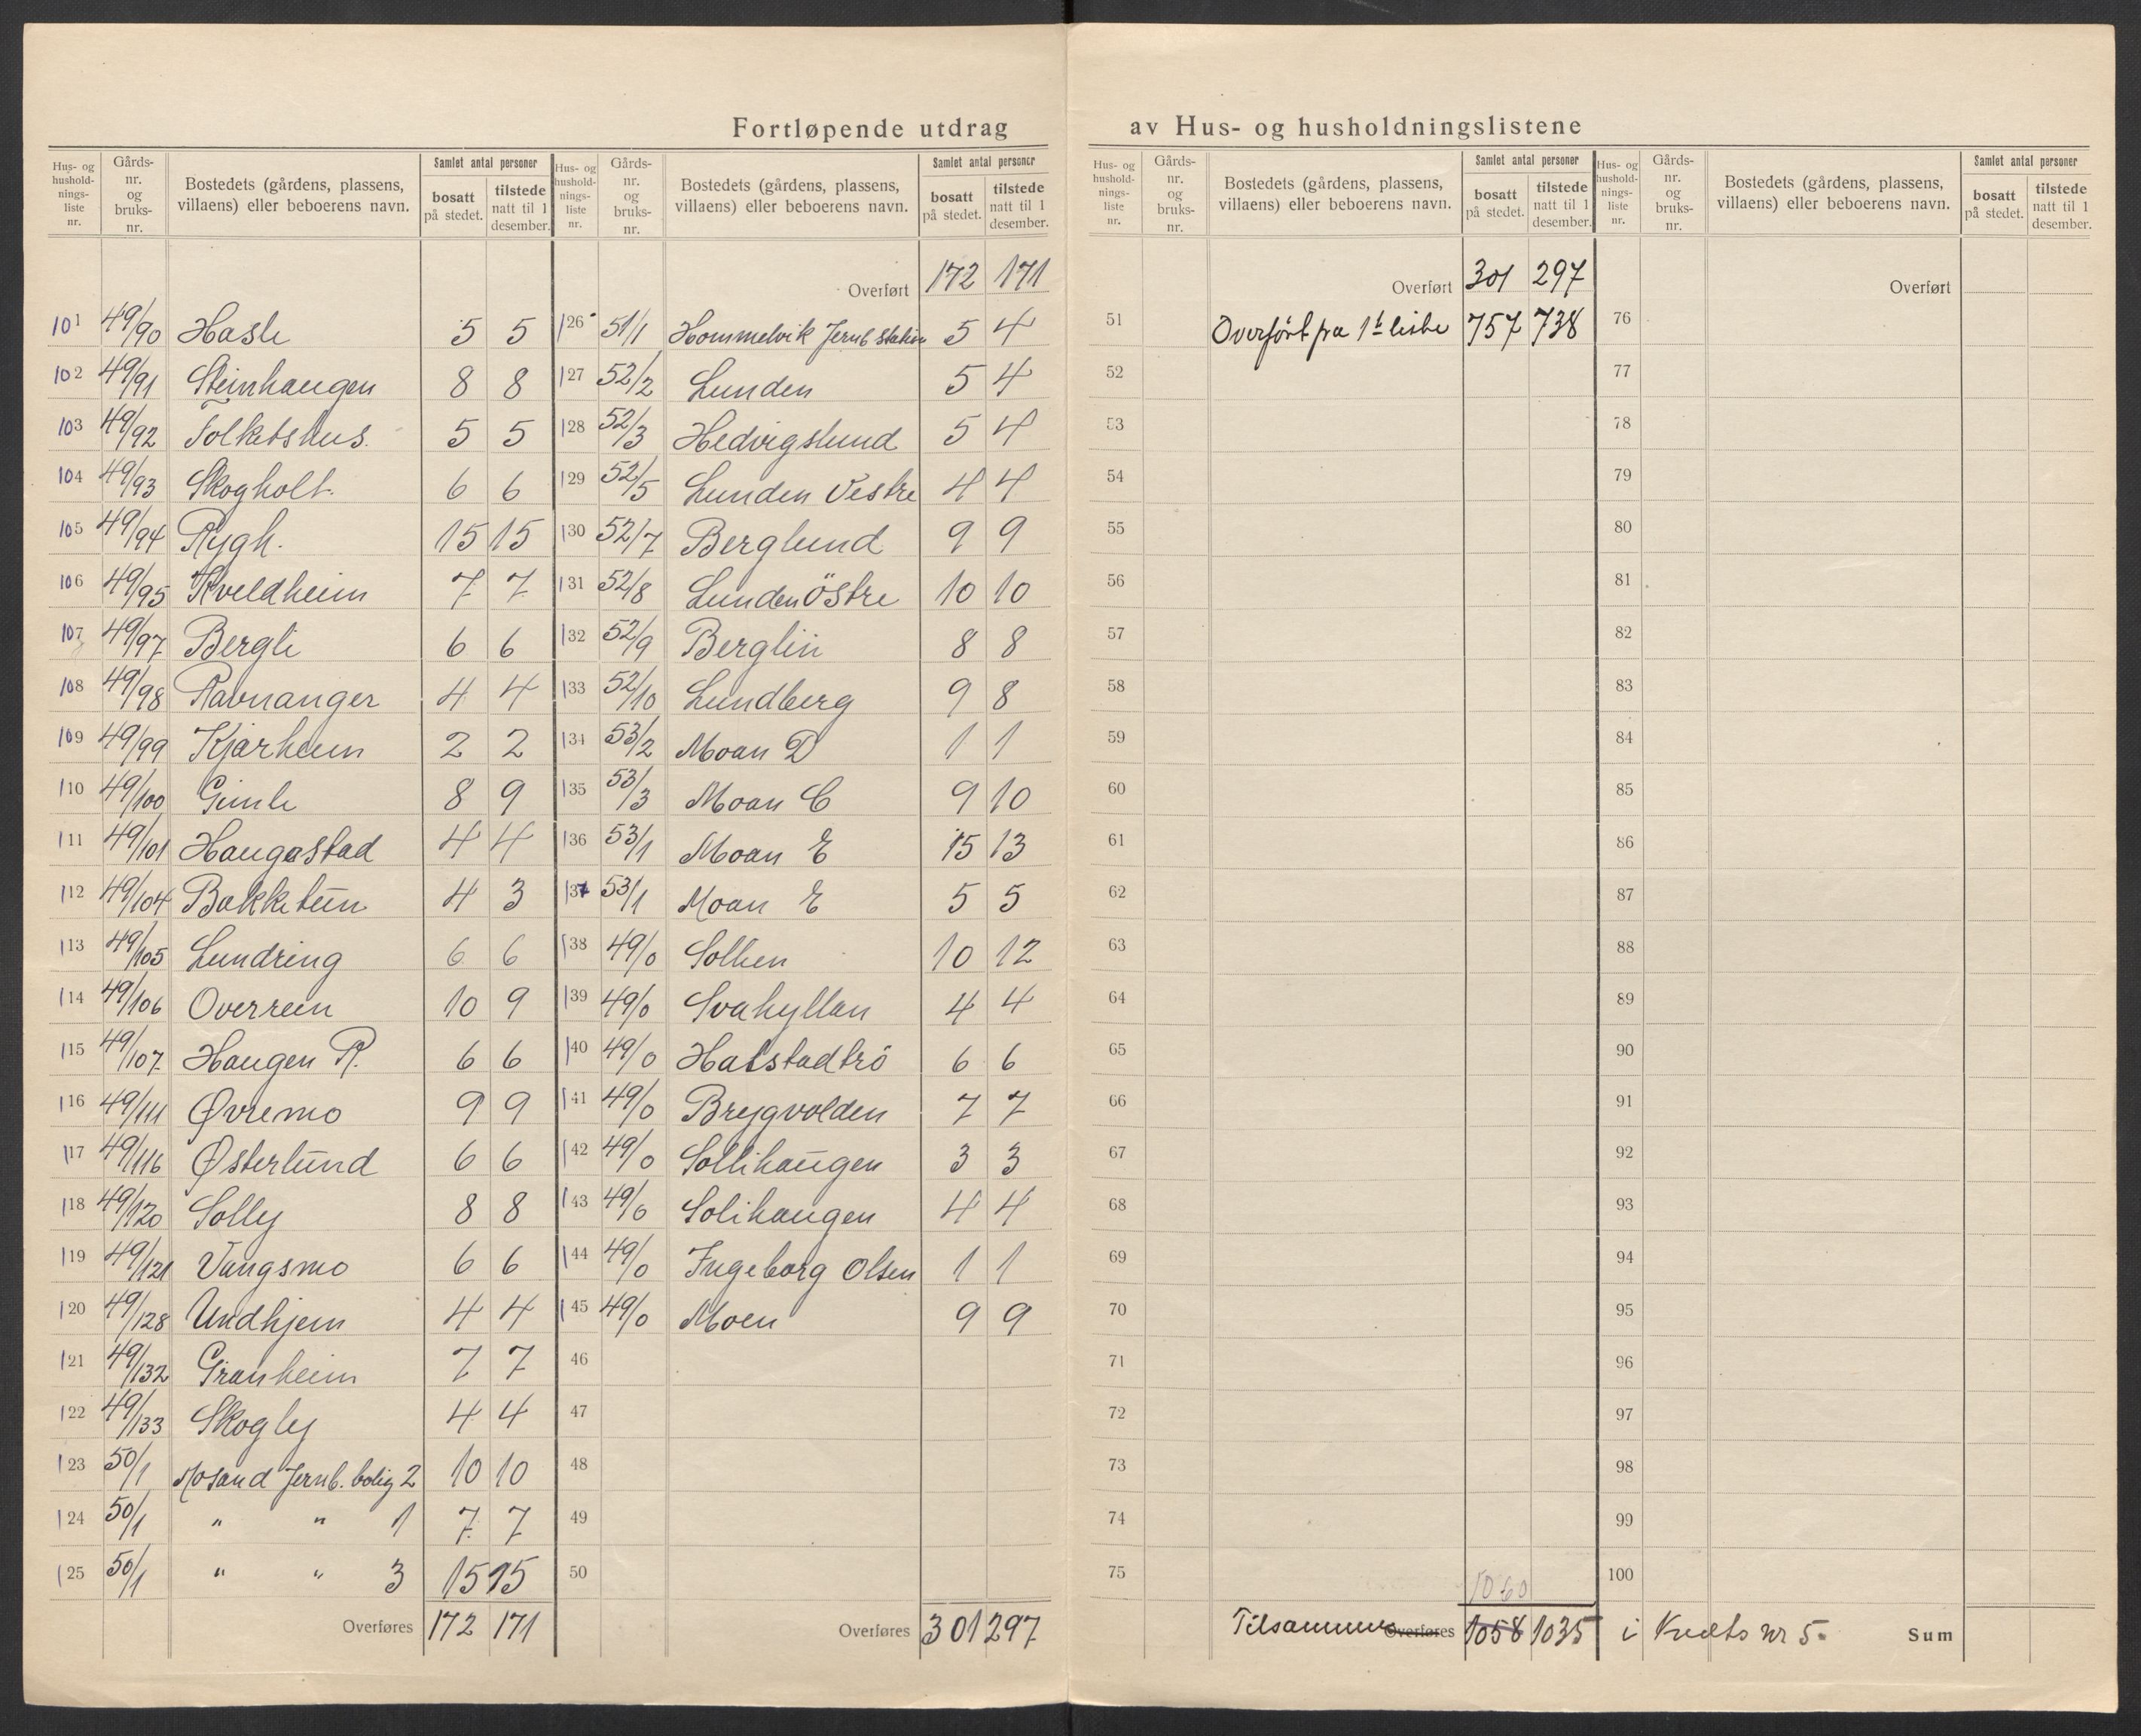 Fortløpende utdrag av Hus- og husholdningslistene
Hus- og husholdnings-liste nr. Gårds-nr. og bruks-nr. Bostedets (gårdens, plassens, villaens) eller beboerens navn. Samlet antal personer bosatt på stedet. tilstede natt til 1 desember.
101 49/90 Hasle 5 5
102 49/91 Steinhaugen 8 8
103 49/92 Folketshus. 5 5
104 49/93 Skogholt. 6 6
105 49/94 Rygh. 15 15
106 49/95 Kveldheim 7 7
107 49/97 Bergli 6 6
108 49/98 Ravnanger 4 4
109 49/99 Kjærheim 2 2
110 49/100 Gimle 8 9
111 49/101 Haugastad 4 4
112 49/104 Bakketun 4 3
113 49/105 Lundring 6 6
114 49/106 Overrein 10 9
115 49/107 Haugen R. 6 6
116 49/111 Øvremo 9 9
117 49/116 Østerlund 6 6
118 49/120 Solly 8 8
119 49/121 Vangsmo 6 6
120 49/128 Undhjem 4 4
121 49/132 Granheim 7 7
122 49/133 Skogly 4 4
123 50/1 Mosand Jernb. bolig 2 10 10
124 50/1 " " 1 7 7
125 50/1 " " 3 15 15
Overføres 172 171
Hus- og husholdnings-liste nr. Gårds-nr. og bruks-nr. Bostedets (gårdens, plassens, villaens) eller beboerens navn. Samlet antal personer bosatt på stedet. tilstede natt til 1 desember.
Overført 172 171
126 51/1 Hommelvik Jernb station 5 4
127 52/2 Lunden 5 4
128 52/3 Hedvigslund 5 4
129 52/5 Lunden Vestre 4 4
130 52/7 Berglund 9 9
131 52/8 Lunden Östre 10 10
132 52/9 Berglin 8 8
133 52/10 Lundberg 9 8
134 53/2 Moan D 1 1
135 53/3 Moan C 9 10
136 53/1 Moan E 15 13
137 53/1 Moan E 5 5
138 49/0 Solhen 10 12
139 49/0 Svahyllan 4 4
140 49/0 Halstadtrö 6 6
141 49/0 Brygvolden 7 7
142 49/0 Sollihaugen 3 3
143 49/0 Solihaugen 4 4
144 49/0 Ingeborg Olsen 1 1
145 49/0 Moen 9 9
46
47
48
49
50
Overføres 301 297
Hus- og husholdnings-liste nr. Gårds-nr. og bruks-nr. Bostedets (gårdens, plassens, villaens) eller beboerens navn. Samlet antal personer bosatt på stedet. tilstede natt til 1 desember.
Overført 301 297
51 Overført fra 1ste liste 757 738
52
53
54
55
56
57
58
59
60
61
62
63
64
65
66
67
68
69
70
71
72
73
74
75
1060
Tilsammen Overføres 1058 1035 i Kreds nr 5.
Hus- og husholdnings-liste nr. Gårds-nr. og bruks-nr. Bostedets (gårdens, plassens, villaens) eller beboerens navn. Samlet antal personer bosatt på stedet. tilstede natt til 1 desember.
Overført
76
77
78
79
80
81
82
83
84
85
86
87
88
89
90
91
92
93
94
95
96
97
98
99
100
Sum